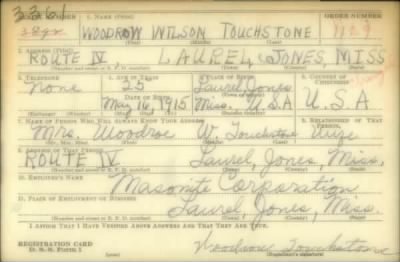 3361
SERIAL NUMBER 1. NAME (Print) ORDER NUMBER
WOODROW WILSON TOUCHSTONE
(First) (Middle) (Last)
2. ADDRESS (Print)
ROUTE IV LAUREL, JONES, MISS
3. TELEPHONE 4. AGE IN YEARS 5. PLACE OF BIRTH 6. COUNTRY OF CITIZENSHIP
None 25 Laurel, Jones
DATE OF BIRTH
May 16, 1915 Miss. U.S.A U.S.A
7. NAME OF PERSON WHO WILL ALWAYS KNOW YOUR ADDRESS 8. RELATIONSHIP OF THAT PERSON
Mrs. Woodroe W. Touchstone Wife
9. ADDRESS OF THAT PERSON
ROUTE IV Laurel, Jones, Miss.
10. EMPLOYER'S NAME
Masonite Corporation
11. PLACE OF EMPLOYMENT OR BUSINESS
Laurel, Jones, Miss.
I AFFIRM THAT I HAVE VERIFIED ABOVE ANSWERS AND THAT THEY ARE TRUE.
REGISTRATION CARD
D. S. S. Form 1
Woodrow Touchstone
(Registrant's signature)